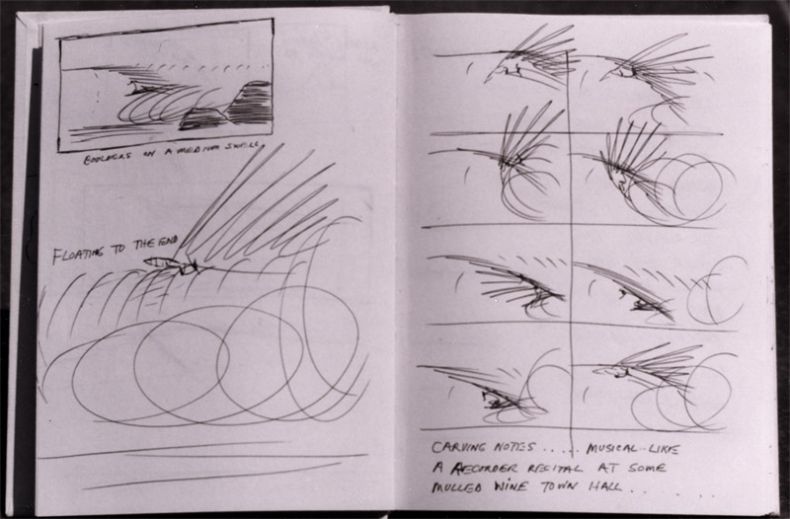 BOULDERS ON A MEDIUM SWELL
FLOATING TO THE END
CARVING NOTES ..... MUSICAL-LIKE
A RECORDER RECITAL AT SOME
MULLED WINE TOWN HALL . . . . . .